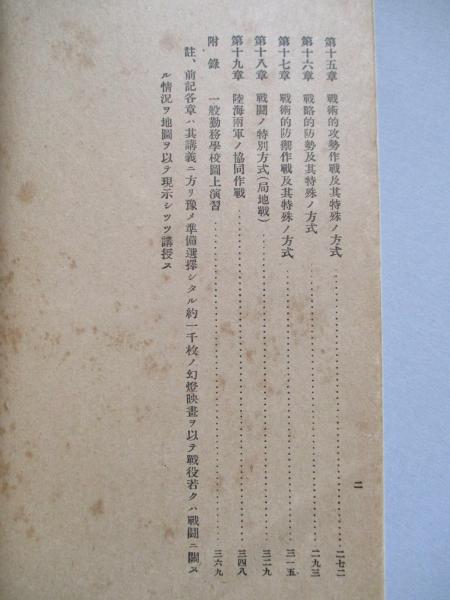 二
第十五章 戰術的攻勢作戰及其特殊ノ方式‥‥‥‥‥‥‥‥二七二
第十六章 戰略的防勢及其特殊ノ方式‥‥‥‥‥‥‥‥二九三
第十七章 戰術的防禦作戰及其特殊ノ方式‥‥‥‥‥‥‥‥三一五
第十八章 戰鬪ノ特別方式（局地戰）‥‥‥‥‥‥‥‥三二九
第十九章 陸海兩軍ノ協同作戰‥‥‥‥‥‥‥‥三四八
附錄 一般勤務學校圖上演習‥‥‥‥‥‥‥‥三六九
註、前記各章ハ其講義ニ方リ豫メ準備選擇シタル約一千枚ノ幻燈映畫ヲ以テ戰役若クハ戰鬪ニ關ス
ル情況ヲ地圖ヲ以テ現示シツツ講授ス